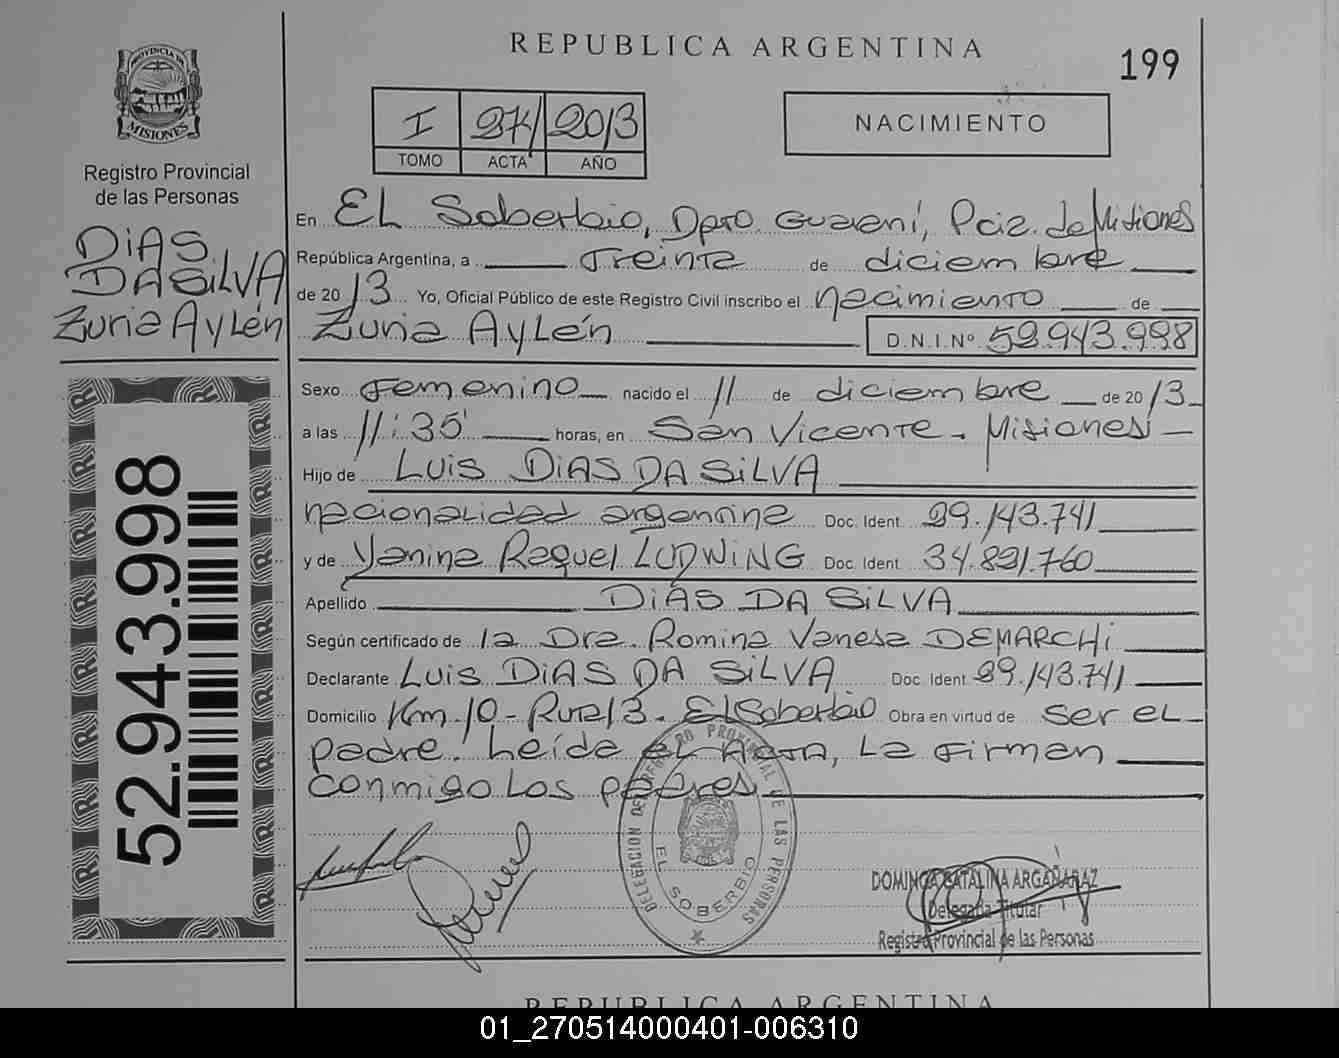 REPUBLICA ARGENTINA
199
PROVINCIA DE MISIONES
Registro Provincial
de las Personas
I 271 2013
TOMO ACTA AÑO
NACIMIENTO
DiAS
DA SiLVA
Zuria Aylén
En EL Soberbio, Dpto Guaraní, Pcia. de Misiones
República Argentina, a Treinta de diciembre
de 2013 Yo, Oficial Público de este Registro Civil inscribo el nacimiento de
Zuria Aylén D.N.I.Nº 52.943.998
Sexo Femenino nacido el 11 de diciembre de 2013
a las 11:35' horas, en San Vicente - Misiones
Hijo de Luis DiAS DA SiLVA
nacionalidad argentina Doc. Ident. 29.143.741
y de Yanina Raquel LUDWiNG Doc. Ident. 34.821.760
Apellido DiAS DA SiLVA
Según certificado de la Dra. Romina Vanesa DEMARCHi
Declarante Luis DiAS DA SiLVA Doc. Ident. 29.143.741
Domicilio Km. 10 - Ruta 13. El Soberbio Obra en virtud de ser el
padre. Leída el ACTA, La Firman
conmigo Los padres
52.943.998
DELEGACION DEL REGISTRO PROVINCIAL DE LAS PERSONAS
EL SOBERBIO
DOMINGA CATALINA ARGAÑARAZ
Delegada Titular
Registro Provincial de las Personas
REPUBLICA ARGENTINA
01_270514000401-006310